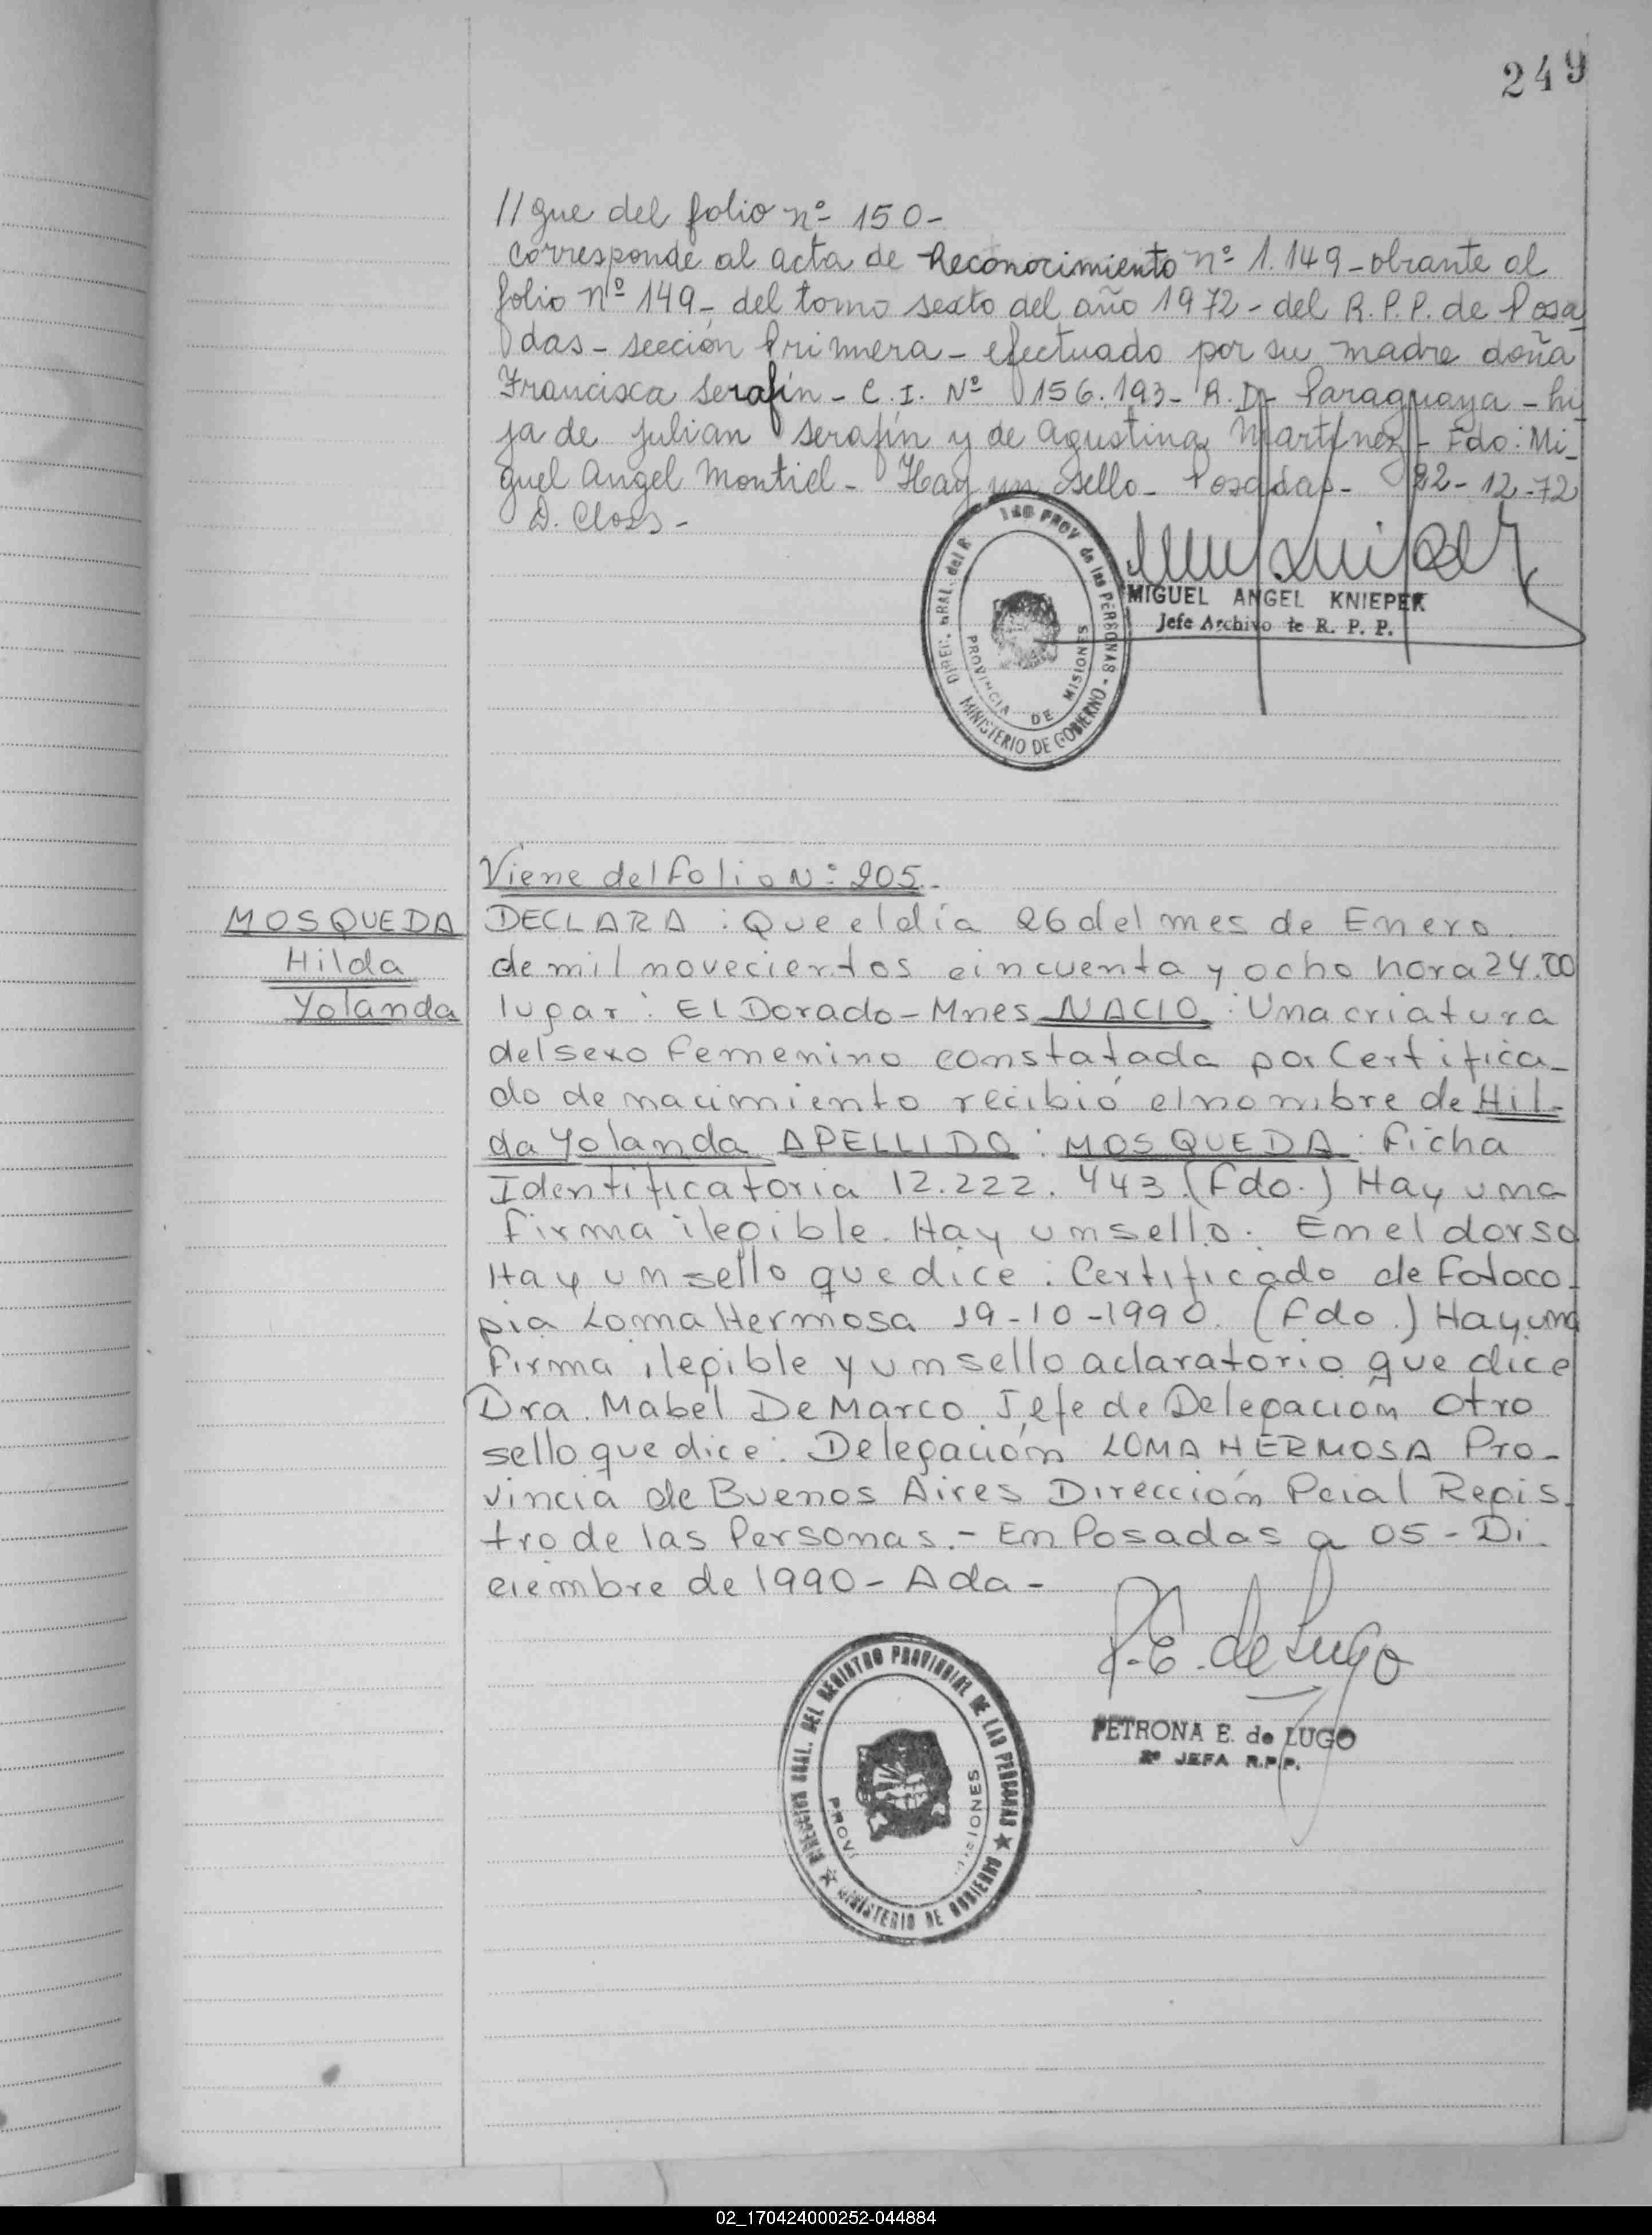 249
//gue del folio nº 150-
corresponde al acta de Reconocimiento nº 1.149-obrante al
folio nº 149-, del tomo sexto del año 1972- del R.P.P. de Posa
das- sección Primera- efectuado por su madre doña
Francisca Serafín- C. I. Nº 156.193- R. D. Paraguaya - hi
ja de Julian Serafín y de Agustina Martínez- Fdo: Mi_
guel Angel Montiel- Hay un sello- Posadas- 22-12-72
D. Closs-
DIREC. GRAL. del R PROV de las PERSONAS - MINISTERIO DE GOBIERNO
PROVINCIA DE MISIONES
MIGUEL ANGEL KNIEPER
Jefe Archivo de R. P. P.
Viene del folio Nº: 205.-
MOSQUEDA
Hilda
Yolanda
DECLARA : Que el día 26 del mes de Enero.
de mil novecientos cincuenta y ocho hora 24.00
lugar: El Dorado-Mnes NACIO : Una criatura
del sexo Femenino constatada por Certifica_
do de nacimiento recibió el nombre de Hil-
da Yolanda APELLIDO : MOSQUEDA : Ficha
Identificatoria 12.222.443.(Fdo.) Hay una
Firma ilegible. Hay un sello. En el dorso
Hay un sello que dice : Certificado de Fotoco-
pia Loma Hermosa 19-10-1990. (Fdo.) Hay una
Firma ilegible y un sello aclaratorio que dice
Dra. Mabel De Marco Jefe de Delegación Otro
sello que dice: Delegación LOMA HERMOSA Pro-
vincia de Buenos Aires Dirección Pcial Regis-
tro de las Personas.- En Posadas a 05 - Di-
ciembre de 1990- Ada-
P.E. de Lugo
PETRONA E. de LUGO
2º JEFA R.P.P.
DIRECCION GRAL. DEL REGISTRO PROVINCIAL DE LAS PERSONAS ★ MINISTERIO DE GOBIERNO ★
PROVI IONES
02_170424000252-044884